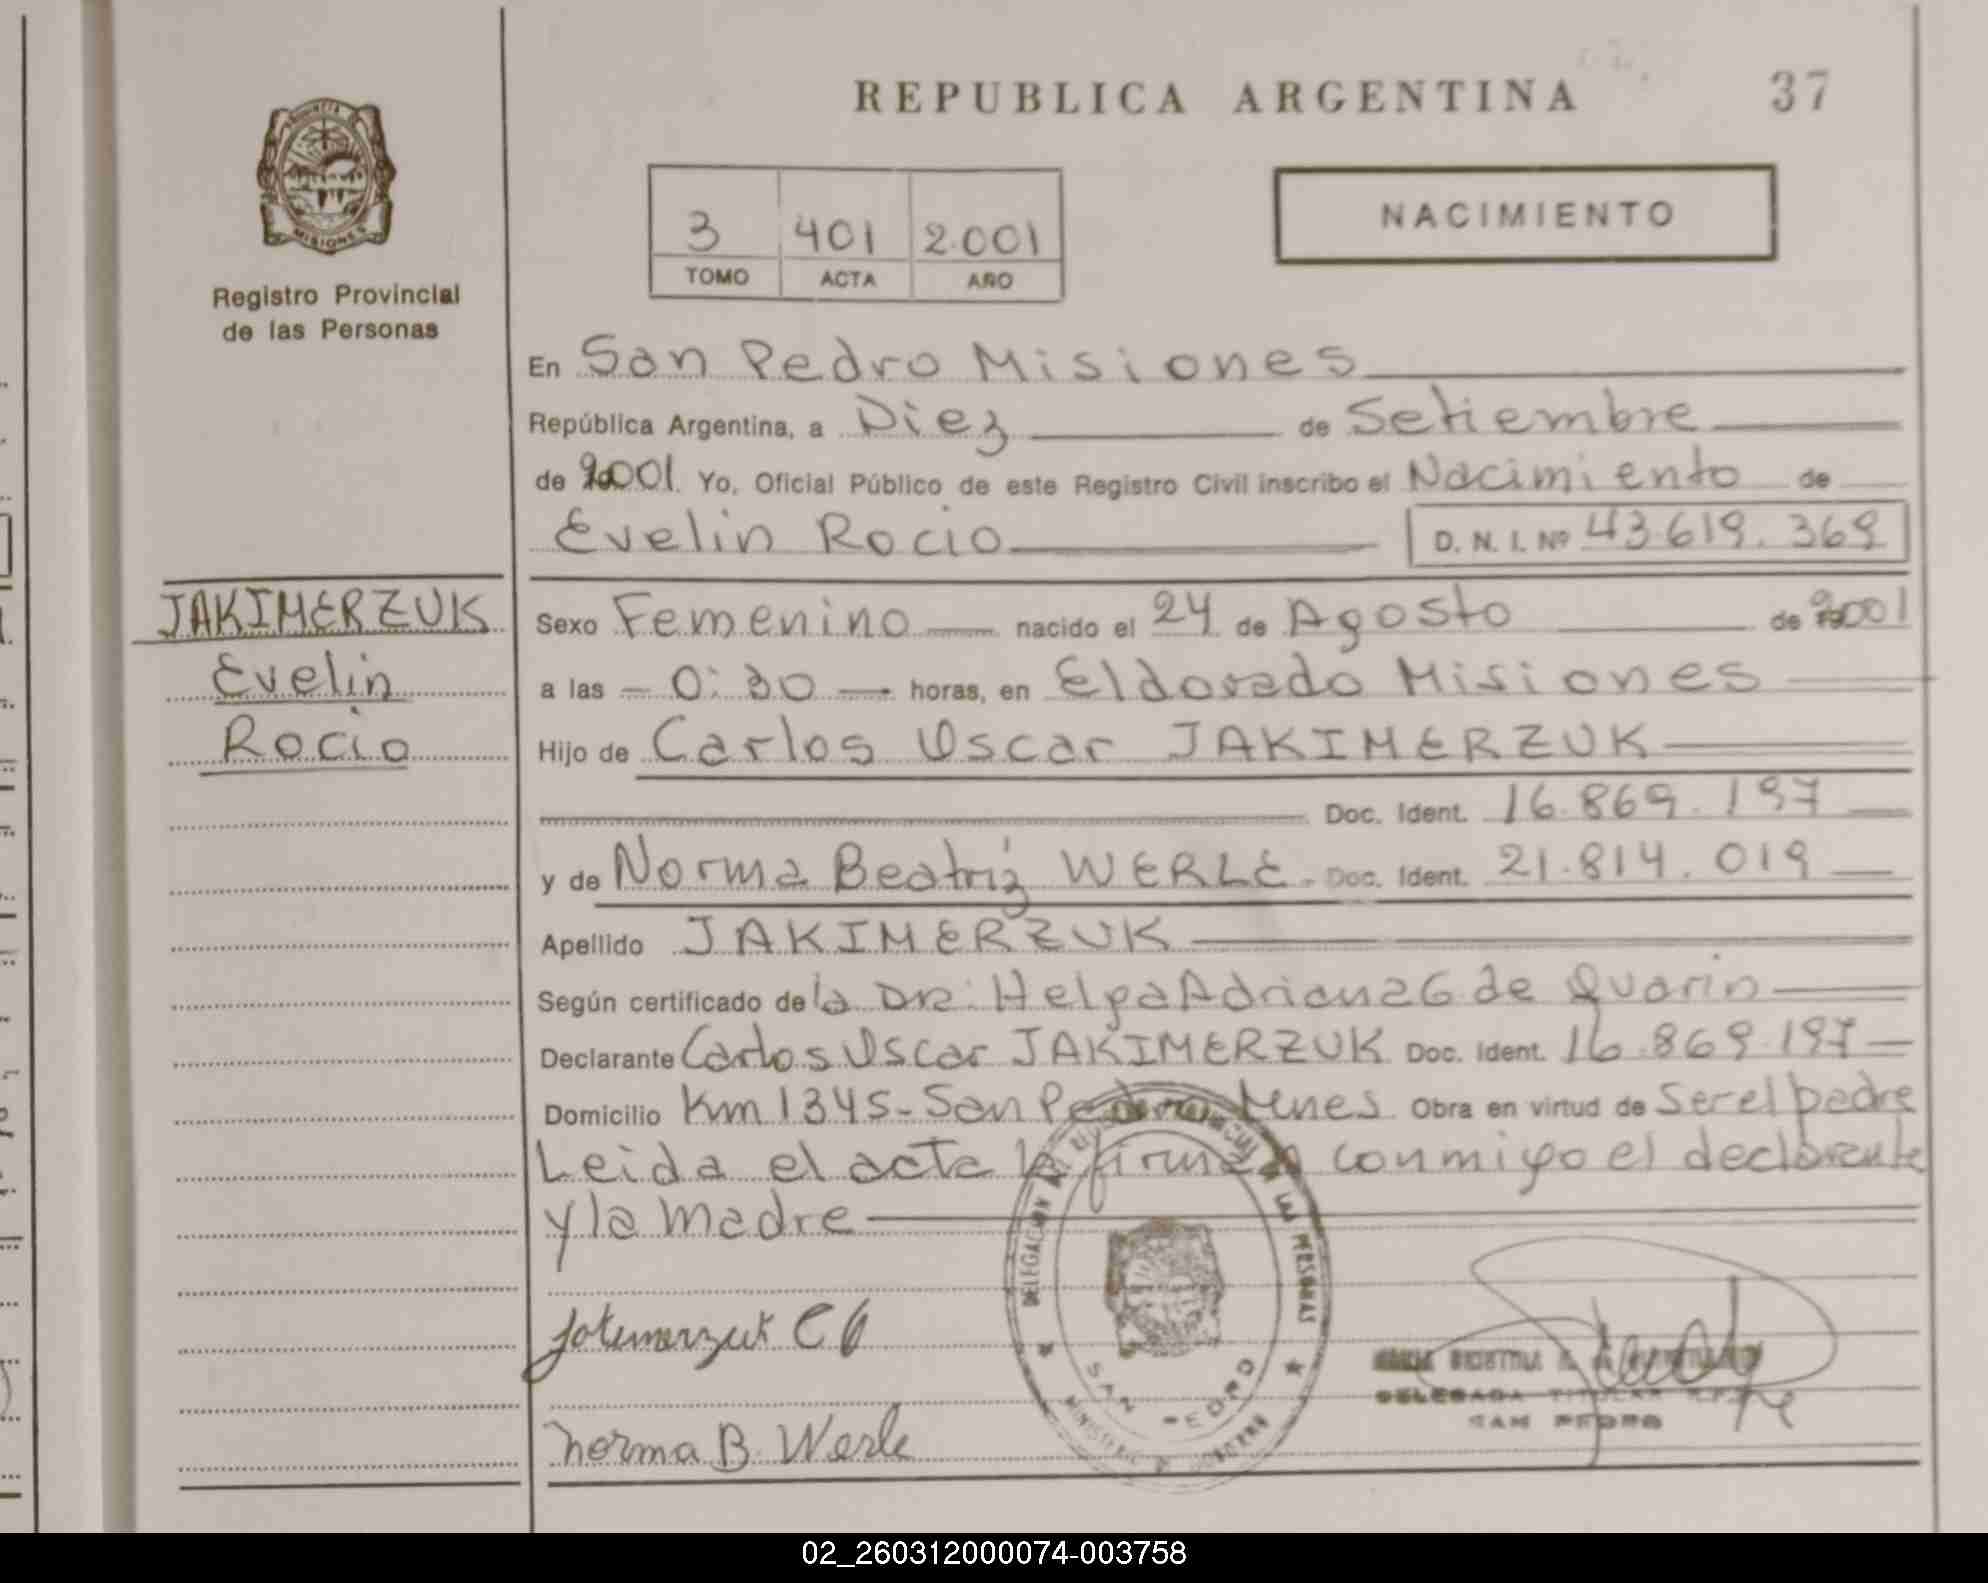 REPUBLICA ARGENTINA 37
MISIONES
Registro Provincial
de las Personas
3 401 2.001
TOMO ACTA AÑO
NACIMIENTO
En San Pedro Misiones
República Argentina, a Diez de Setiembre
de 2001. Yo, Oficial Público de este Registro Civil inscribo el Nacimiento de
Evelin Rocio D. N. I. Nº 43.619.369
JAKIMERZUK
Evelin
Rocio
Sexo Femenino nacido el 24 de Agosto de 2001
a las - 0:30 - horas, en Eldorado Misiones
Hijo de Carlos Oscar JAKIMERZUK
Doc. Ident. 16.869.197
y de Norma Beatriz WERLE. Doc. Ident. 21.814.019
Apellido JAKIMERZUK
Según certificado de la DRa: Helga Adriana G de Quarin
Declarante Carlos Oscar JAKIMERZUK Doc. Ident. 16.869.197
Domicilio Km 1345 - San Pedro Mnes Obra en virtud de Ser el padre
Leida el acta la firman conmigo el declarante
y la madre
DELEGACION DEL REGISTRO PROVINCIAL DE LAS PERSONAS
SAN PEDRO
MINISTERIO DE GOBIERNO
Jakimerzuk C O
Norma B. Werle
DELEGADA TITULAR R.P.P.
SAN PEDRO
02_260312000074-003758